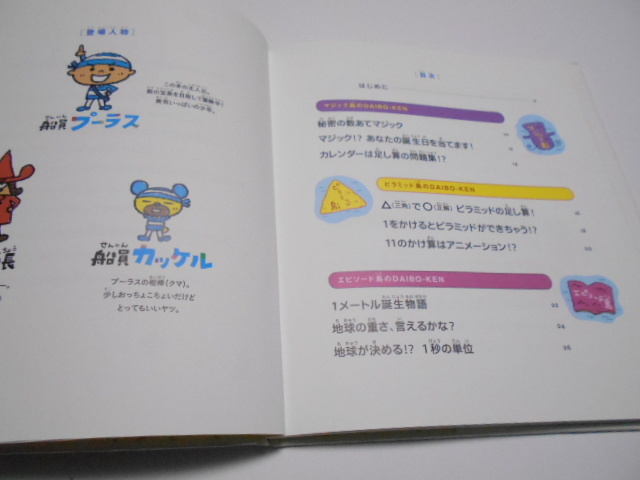 [登場人物]
この本の主人公。
数の宝島を目指して冒険中!
勇気いっぱいの少年。
せんいん
船員 プーラス
長
せんいん
船員 カッケル
プーラスの相棒(クマ)。
少しおっちょこちょいだけど
とってもいいヤツ。
[目次]
はじめに
マジック島のDAIBO-KEN
秘密の数あてマジック
マジック!? あなたの誕生日を当てます!
カレンダーは足し算の問題集!?
ピラミッド島のDAIBO-KEN
△(三角)で〇(正解) ピラミッドの足し算!
1をかけるとピラミッドができちゃう!?
11のかけ算はアニメーション!?
エピソード島のDAIBO-KEN
エピソード島
1メートル誕生物語 22
地球の重さ、言えるかな? 24
地球が決める!? 1秒の単位 26